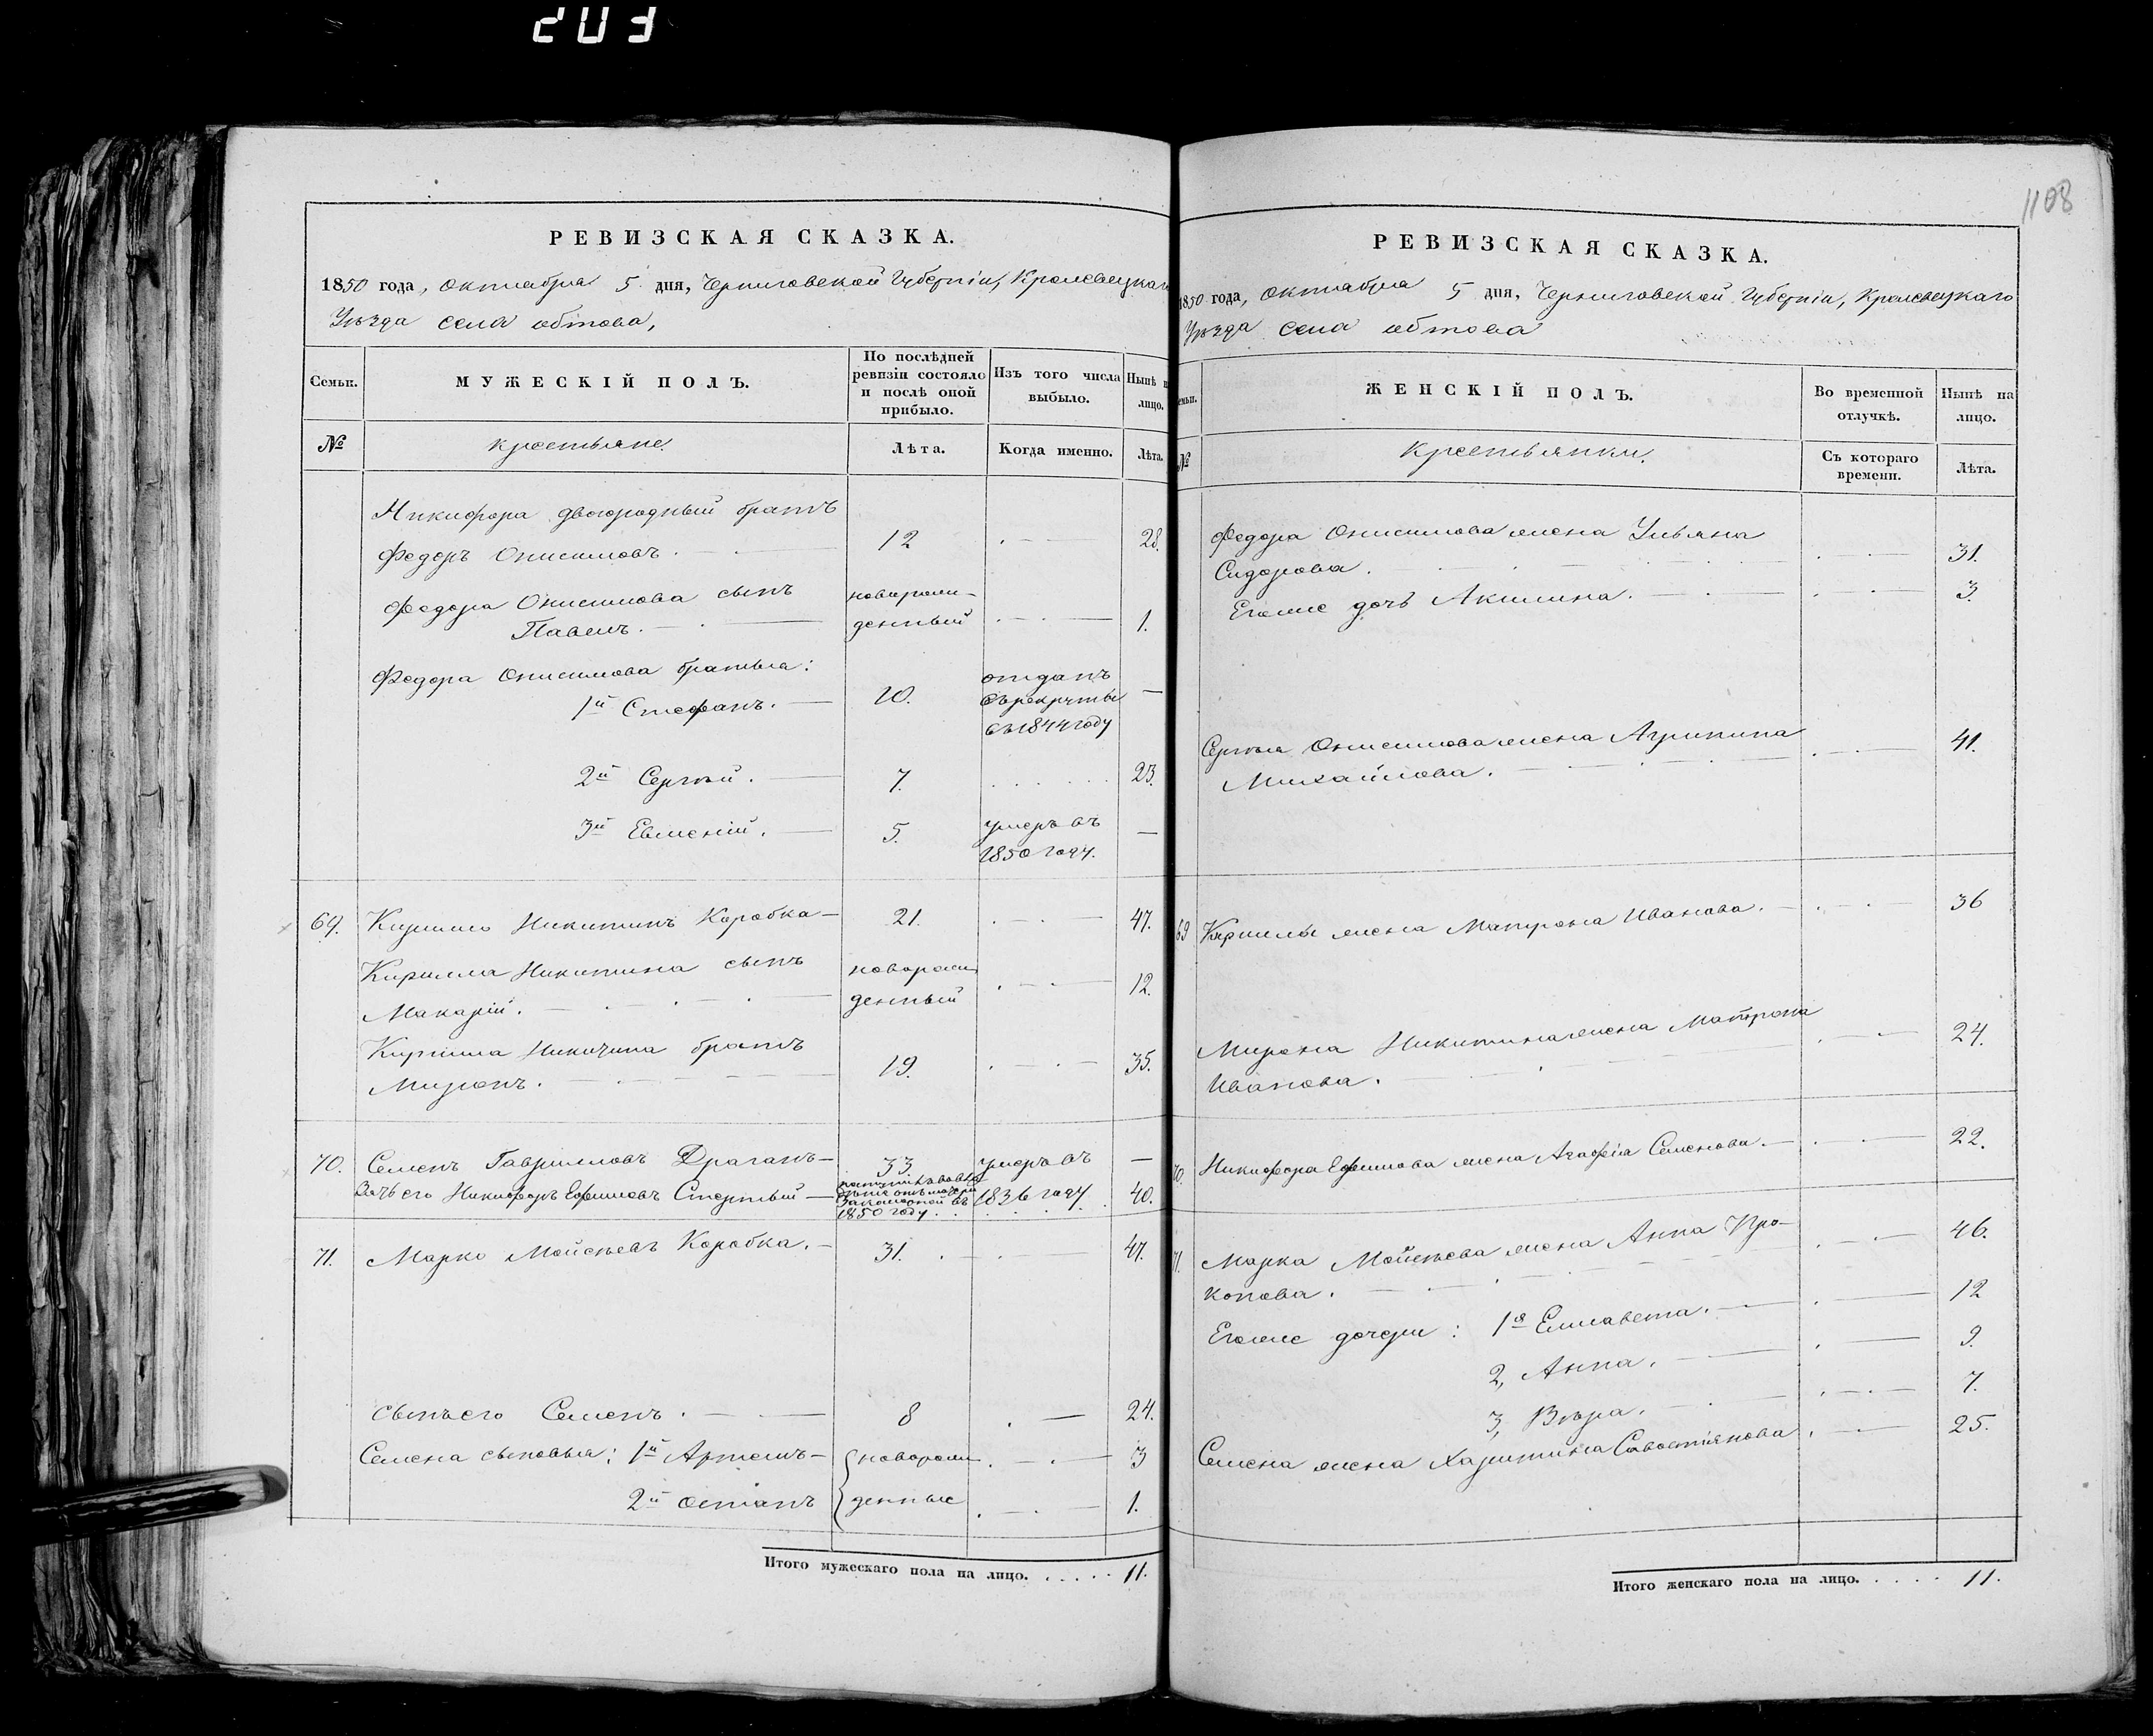 203
1108
РЕВИЗСКАЯ СКАЗКА.
1850 года, октября 5 дня, Черниговской Губерніи, Кролевецкаго
Уѣзда села обтова,
Семьи.
МУЖЕСКІЙ ПОЛЪ.
По послѣдней ревизіи состояло и послѣ оной прибыло.
Изъ того числа выбыло.
Нынѣ на лицо.
№
крестьяне.
Лѣта.
Когда именно.
Лѣта.
Никифора двоюродный братъ
Федоръ Онисимовъ. 12 28.
Федора Онисимова сынъ новорож-
Павелъ. денный 1.
Федора Онисимова братья:
1й Стефанъ. 10. отданъ
въ рекруты —
въ 1844 году
2й Сергѣй. 7. 23.
3й Евменій. 5. умеръ въ —
1850 году.
69. Кирило Никитинъ Коробка — 21. 47.
Кирилла Никитина сынъ новорож
Макарій. денный 12.
Кирилла Никитина братъ
Миронъ. 19. 35.
70. Семенъ Гавриловъ Драганъ — 33. умеръ въ —
Зять его Никифоръ Ефимовъ Стертый — 1836 году 40.
1850 году
71. Марко Мойсѣевъ Коробка. — 31. 47.
сынъ его Семенъ. 8 24.
Семена сыновья: 1й Артемъ — новорож 3
2й Остапъ денные 1.
Итого мужескаго пола на лицо. . . . . 11.
РЕВИЗСКАЯ СКАЗКА.
1850 года, октября 5 дня, Черниговской Губерніи, Кролевецкаго
Уѣзда села обтова
Семьи.
ЖЕНСКІЙ ПОЛЪ.
Во временной отлучкѣ.
Нынѣ на лицо.
№
крестьянки.
Съ котораго времени.
Лѣта.
Федора Онисимова жена Ульяна
Сидорова. 31.
Егоже дочь Акилина. 3.
Сергѣя Онисимова жена Агрипина 41.
Михайлова.
69 Кирилы жена Матрона Иванова. 36
Мирона Никитина жена Матрона 24.
Иванова.
70. Никифора Ефимова жена Агафія Семенова. 22.
71. Марка Мойсѣева жена Анна Про- 46.
копова.
Егоже дочери: 1я Елисавета. 12
2, Анна. 9.
3, Вѣра. 7.
Семена жена Харитина Савостіянова 25.
Итого женскаго пола на лицо. . . . . 11.